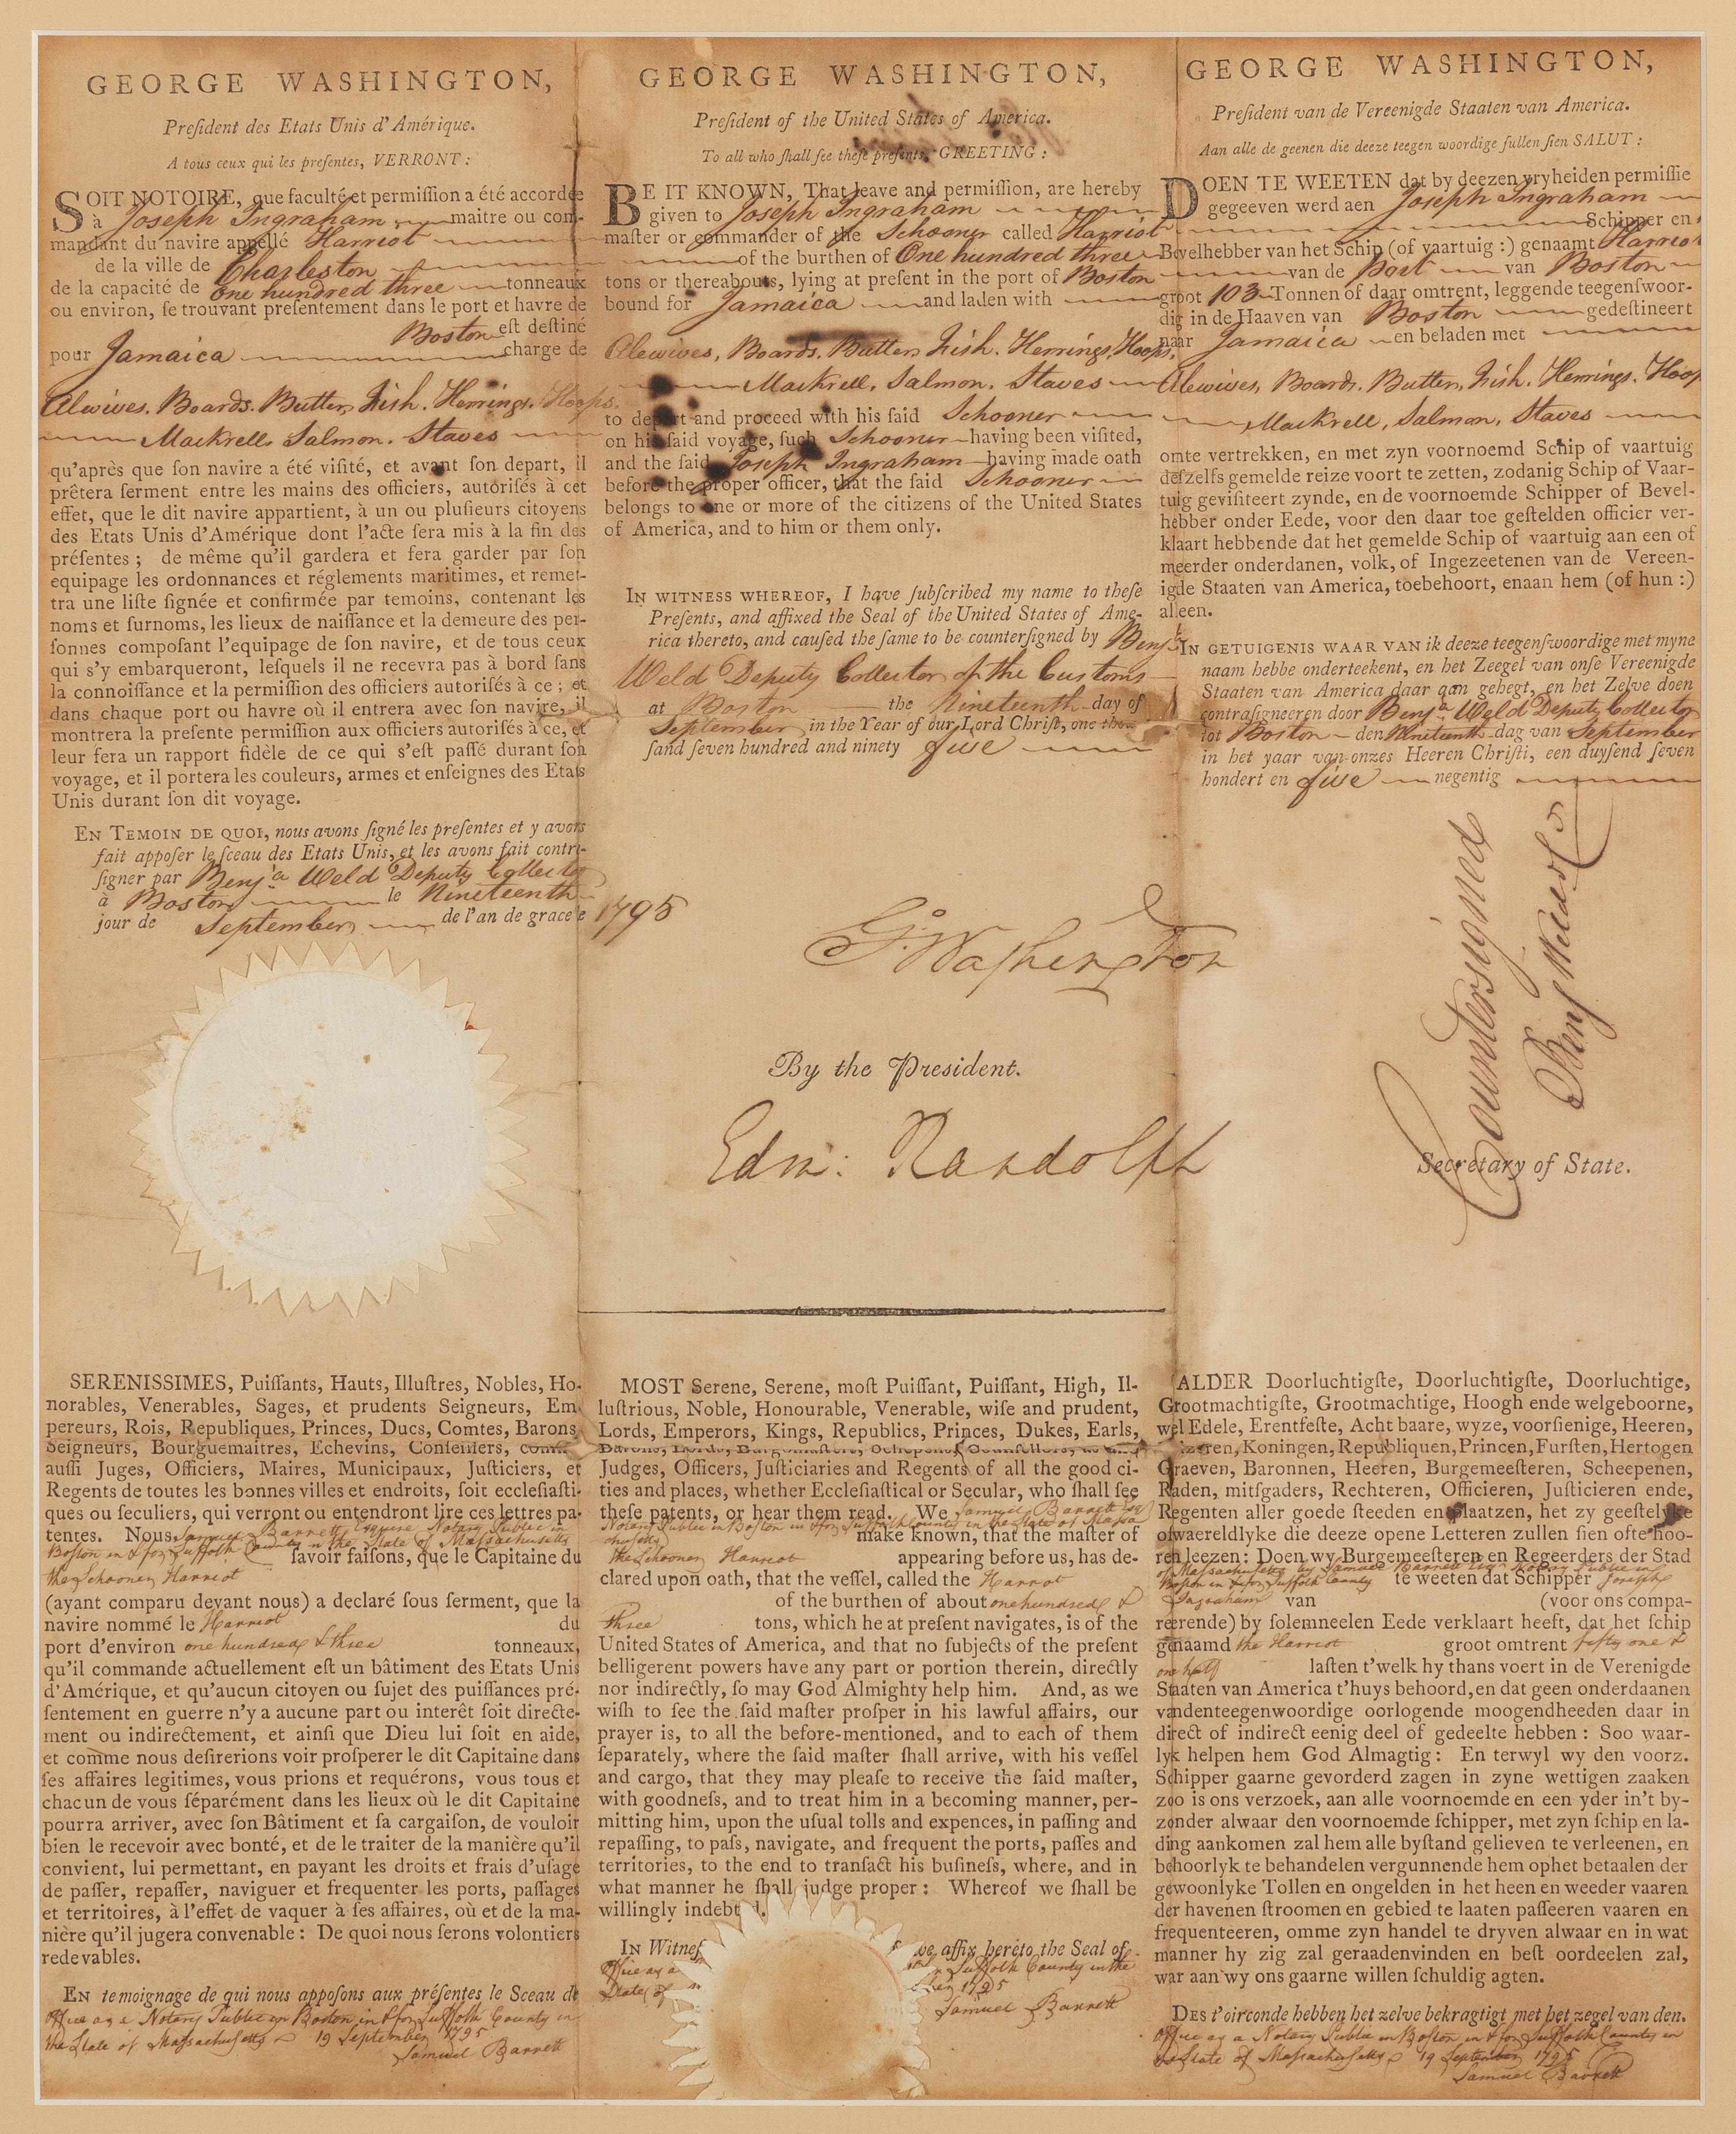 GEORGE WASHINGTON,
Preſident des Etats Unis d'Amérique.
A tous ceux qui les preſentes, VERRONT:
SOIT NOTOIRE, que faculté et permiſſion a été accordée
à Joseph Ingraham maitre ou com-
mandant du navire appellé Harriot
de la ville de Charleston
de la capacité de One hundred three tonneaux
ou environ, ſe trouvant preſentement dans le port et havre de
Boston eſt deſtiné
pour Jamaica charge de
Alewives. Boards. Butter, Fish. Herrings. Hoops.
Mackrell, Salmon. Staves
qu'après que ſon navire a été viſité, et avant ſon depart, il
prêtera ſerment entre les mains des officiers, autoriſés à cet
effet, que le dit navire appartient, à un ou pluſieurs citoyens
des Etats Unis d'Amérique dont l'acte ſera mis à la fin des
préſentes; de même qu'il gardera et fera garder par ſon
equipage les ordonnances et réglements maritimes, et remet-
tra une liſte ſignée et confirmée par temoins, contenant les
noms et ſurnoms, les lieux de naiſſance et la demeure des per-
ſonnes compoſant l'equipage de ſon navire, et de tous ceux
qui s'y embarqueront, leſquels il ne recevra pas à bord ſans
la connoiſſance et la permiſſion des officiers autoriſés à ce; et
dans chaque port ou havre où il entrera avec ſon navire, il
montrera la preſente permiſſion aux officiers autoriſés à ce, et
leur fera un rapport fidèle de ce qui s'eſt paſſé durant ſon
voyage, et il portera les couleurs, armes et enſeignes des Etats
Unis durant ſon dit voyage.
EN TEMOIN DE QUOI, nous avons ſigné les preſentes et y avons
fait appoſer le ſceau des Etats Unis, et les avons fait contre-
ſigner par Benja Weld Deputy Collector
à Boston le Nineteenth
jour de September de l'an de grace le 1795
GEORGE WASHINGTON,
Preſident of the United States of America.
To all who ſhall ſee theſe preſents, GREETING:
BE IT KNOWN, That leave and permiſſion, are hereby
given to Joseph Ingraham
maſter or commander of the Schooner called Harriot
of the burthen of One hundred three
tons or thereabouts, lying at preſent in the port of Boston
bound for Jamaica and laden with
Alewives, Boards. Butter, Fish. Herrings, Hoops,
Mackrell, Salmon. Staves
to depart and proceed with his ſaid Schooner
on his ſaid voyage, ſuch Schooner having been viſited,
and the ſaid Joseph Ingraham having made oath
before the proper officer, that the ſaid Schooner
belongs to one or more of the citizens of the United States
of America, and to him or them only.
IN WITNESS WHEREOF, I have ſubſcribed my name to theſe
Preſents, and affixed the Seal of the United States of Ame-
rica thereto, and cauſed the ſame to be counterſigned by Benja
Weld Deputy Collector of the Customs
at Boston the Nineteenth day of
September in the Year of our Lord Chriſt, one thou-
ſand ſeven hundred and ninety five
GEORGE WASHINGTON,
Preſident van de Vereenigde Staaten van America.
Aan alle de geenen die deeze teegen woordige ſullen ſien SALUT:
DOEN TE WEETEN dat by deezen vryheiden permiſſie
gegeeven werd aen Joseph Ingraham
Schipper en
Bevelhebber van het Schip (of vaartuig:) genaamt Harriot
van de Port van Boston
groot 103 Tonnen of daar omtrent, leggende teegenſwoor-
dig in de Haaven van Boston gedeſtineert
naar Jamaica en beladen met
Alewives, Boards. Butter, Fish. Herrings. Hoop
Mackrell, Salmon, Staves
omte vertrekken, en met zyn voornoemd Schip of vaartuig
deſzelfs gemelde reize voort te zetten, zodanig Schip of Vaar-
tuig geviſiteert zynde, en de voornoemde Schipper of Bevel-
hebber onder Eede, voor den daar toe geſtelden officier ver-
klaart hebbende dat het gemelde Schip of vaartuig aan een of
meerder onderdanen, volk, of Ingezeetenen van de Vereen-
igde Staaten van America, toebehoort, enaan hem (of hun:)
alleen.
IN GETUIGENIS WAAR VAN ik deeze teegenſwoordige met myne
naam hebbe onderteekent, en het Zeegel van onſe Vereenigde
Staaten van America daar aan gehegt, en het Zelve doen
contraſigneeren door Benja Weld Deputy Collector
tot Boston den Nineteenth dag van September
in het yaar van onzes Heeren Chriſti, een duyſend ſeven
hondert en five negentig
G:Washington
By the President.
Edm: Randolph
Countersigned
Benj Weld
Secretary of State.
SERENISSIMES, Puiſſants, Hauts, Illuſtres, Nobles, Ho-
norables, Venerables, Sages, et prudents Seigneurs, Em-
pereurs, Rois, Republiques, Princes, Ducs, Comtes, Barons,
Seigneurs, Bourguemaitres, Echevins, Conſeillers, comme
auſſi Juges, Officiers, Maires, Municipaux, Juſticiers, et
Regents de toutes les bonnes villes et endroits, ſoit eccleſiaſti-
ques ou ſeculiers, qui verront ou entendront lire ces lettres pa-
tentes. Nous Samuel Barrett Esquire Notary Public in
Boston in & for Suffolk County in the State of Massachusetts
ſavoir faiſons, que le Capitaine du
the Schooner Harriot
(ayant comparu devant nous) a declaré ſous ſerment, que la
navire nommé le Harriot du
port d'environ one hundred & three tonneaux,
qu'il commande actuellement eſt un bâtiment des Etats Unis
d'Amérique, et qu'aucun citoyen ou ſujet des puiſſances pré-
ſentement en guerre n'y a aucune part ou interêt ſoit directe-
ment ou indirectement, et ainſi que Dieu lui ſoit en aide,
et comme nous deſirerions voir proſperer le dit Capitaine dans
ſes affaires legitimes, vous prions et requérons, vous tous et
chacun de vous ſéparément dans les lieux où le dit Capitaine
pourra arriver, avec ſon Bâtiment et ſa cargaiſon, de vouloir
bien le recevoir avec bonté, et de le traiter de la manière qu'il
convient, lui permettant, en payant les droits et frais d'uſage
de paſſer, repaſſer, naviguer et frequenter les ports, paſſages
et territoires, à l'effet de vaquer à ſes affaires, où et de la ma-
nière qu'il jugera convenable: De quoi nous ſerons volontiers
redevables.
EN temoignage de qui nous appoſons aux préſentes le Sceau de
Office as a Notary Public in Boston in & for Suffolk County in
the State of Massachusetts 19 September 1795
Samuel Barrett
MOST Serene, Serene, moſt Puiſſant, Puiſſant, High, Il-
luſtrious, Noble, Honourable, Venerable, wiſe and prudent,
Lords, Emperors, Kings, Republics, Princes, Dukes, Earls,
Barons, Lords, Burgomaſters, Schepens, Counſellors, as alſo
Judges, Officers, Juſticiaries and Regents of all the good ci-
ties and places, whether Eccleſiaſtical or Secular, who ſhall ſee
theſe patents, or hear them read. We Samuel Barrett Esq
Notary Public in Boston in & for Suffolk County in the State of Massa
chusetts make known, that the maſter of
the Schooner Harriot appearing before us, has de-
clared upon oath, that the veſſel, called the Harriot
of the burthen of about one hundred &
three tons, which he at preſent navigates, is of the
United States of America, and that no ſubjects of the preſent
belligerent powers have any part or portion therein, directly
nor indirectly, ſo may God Almighty help him. And, as we
wiſh to ſee the ſaid maſter proſper in his lawful affairs, our
prayer is, to all the before-mentioned, and to each of them
ſeparately, where the ſaid maſter ſhall arrive, with his veſſel
and cargo, that they may pleaſe to receive the ſaid maſter,
with goodneſs, and to treat him in a becoming manner, per-
mitting him, upon the uſual tolls and expences, in paſſing and
repaſſing, to paſs, navigate, and frequent the ports, paſſes and
territories, to the end to tranſact his buſineſs, where, and in
what manner he ſhall judge proper: Whereof we ſhall be
willingly indebt d.
IN Witneſ we affix hereto the Seal of
Office as a Suffolk County in the
State of 1795
Samuel Barrett
ALDER Doorluchtigſte, Doorluchtigſte, Doorluchtige,
Grootmachtigſte, Grootmachtige, Hoogh ende welgeboorne,
wel Edele, Erentfeſte, Acht baare, wyze, voorſienige, Heeren,
izeren, Koningen, Republiquen, Princen, Furſten, Hertogen
Graeven, Baronnen, Heeren, Burgemeeſteren, Scheepenen,
Raden, mitſgaders, Rechteren, Officieren, Juſticieren ende,
Regenten aller goede ſteeden en plaatzen, het zy geeſtelyke
ofwaereldlyke die deeze opene Letteren zullen ſien ofte hoo-
ren leezen: Doen wy Burgemeeſteren en Regeerders der Stad
of Massachusetts by Samuel Barrett Esq Notary Public in
Boston in & for Suffolk County te weeten dat Schipper Joseph
Ingraham van (voor ons compa-
reerende) by ſolemneelen Eede verklaart heeft, dat het ſchip
genaamd the Harriot groot omtrent fifty one &
one half laſten t'welk hy thans voert in de Verenigde
Staaten van America t'huys behoord, en dat geen onderdaanen
vandenteegenwoordige oorlogende moogendheeden daar in
direct of indirect eenig deel of gedeelte hebben: Soo waar-
lyk helpen hem God Almagtig: En terwyl wy den voorz.
Schipper gaarne gevorderd zagen in zyne wettigen zaaken
zoo is ons verzoek, aan alle voornoemde en een yder in't by-
zonder alwaar den voornoemde ſchipper, met zyn ſchip en la-
ding aankomen zal hem alle byſtand gelieven te verleenen, en
behoorlyk te behandelen vergunnende hem ophet betaalen der
gewoonlyke Tollen en ongelden in het heen en weeder vaaren
der havenen ſtroomen en gebied te laaten paſſeeren vaaren en
frequenteeren, omme zyn handel te dryven alwaar en in wat
manner hy zig zal geraadenvinden en beſt oordeelen zal,
war aan wy ons gaarne willen ſchuldig agten.
DES t'oirconde hebben het zelve bekragtigt met het zegel van den.
Office as a Notary Public in Boston in & for Suffolk County in
the State of Massachusetts 19 September 1795
Samuel Barrett